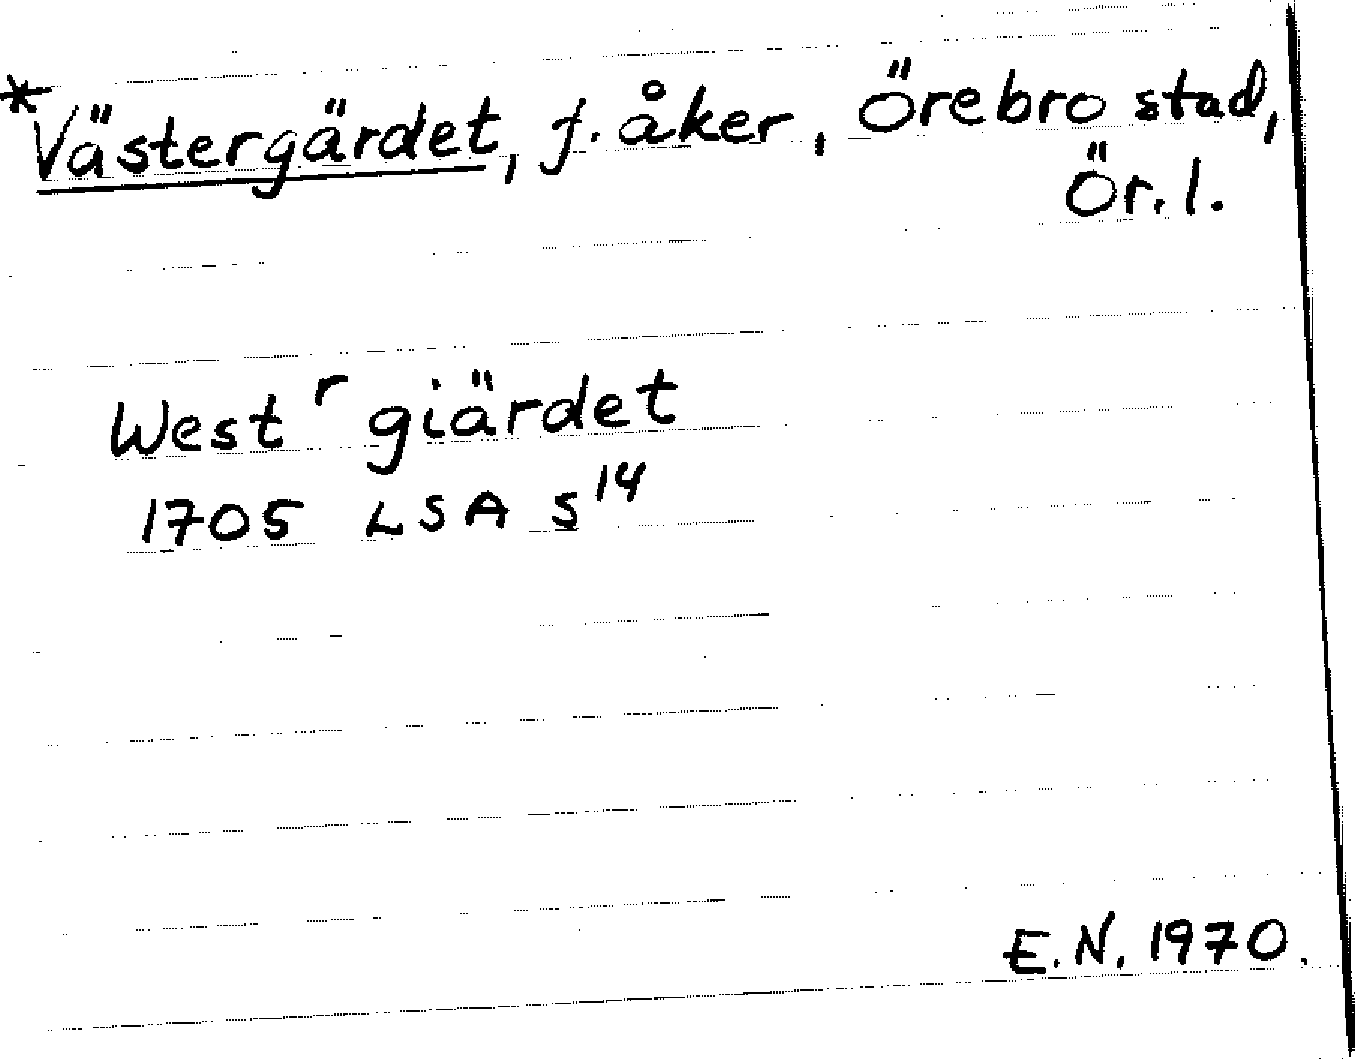 *Västergärdet, f. åker, Örebro stad,
Ör. l.
West ʳ giärdet
1705 LSA S¹⁴
E.N. 1970.